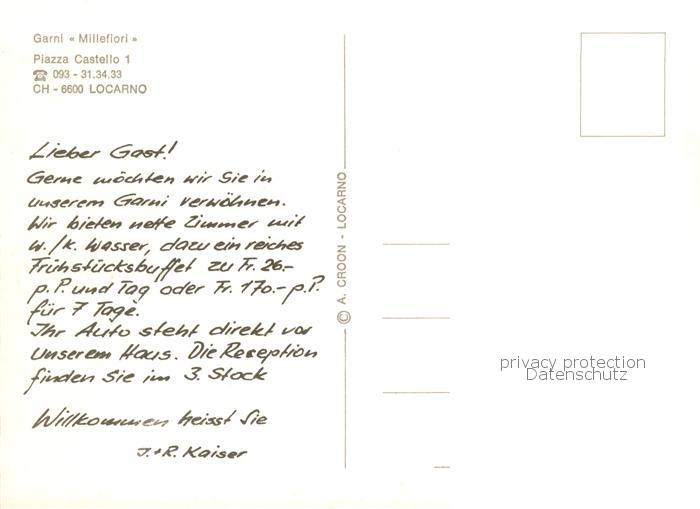 Garni « Millefiori »
Piazza Castello 1
☎ 093 - 31.34.33
CH - 6600 LOCARNO
Lieber Gast!
Gerne möchten wir Sie in
unserem Garni verwöhnen.
Wir bieten nette Zimmer mit
w./k. Wasser, dazu ein reiches
Frühstücksbuffet zu Fr. 26.-
p.P. und Tag oder Fr. 170.- p.P.
für 7 Tage.
Ihr Auto steht direkt vor
unserem Haus. Die Reception
finden Sie im 3. Stock
Willkommen heisst Sie
J.+R. Kaiser
© A. CROON - LOCARNO
privacy protection
Datenschutz